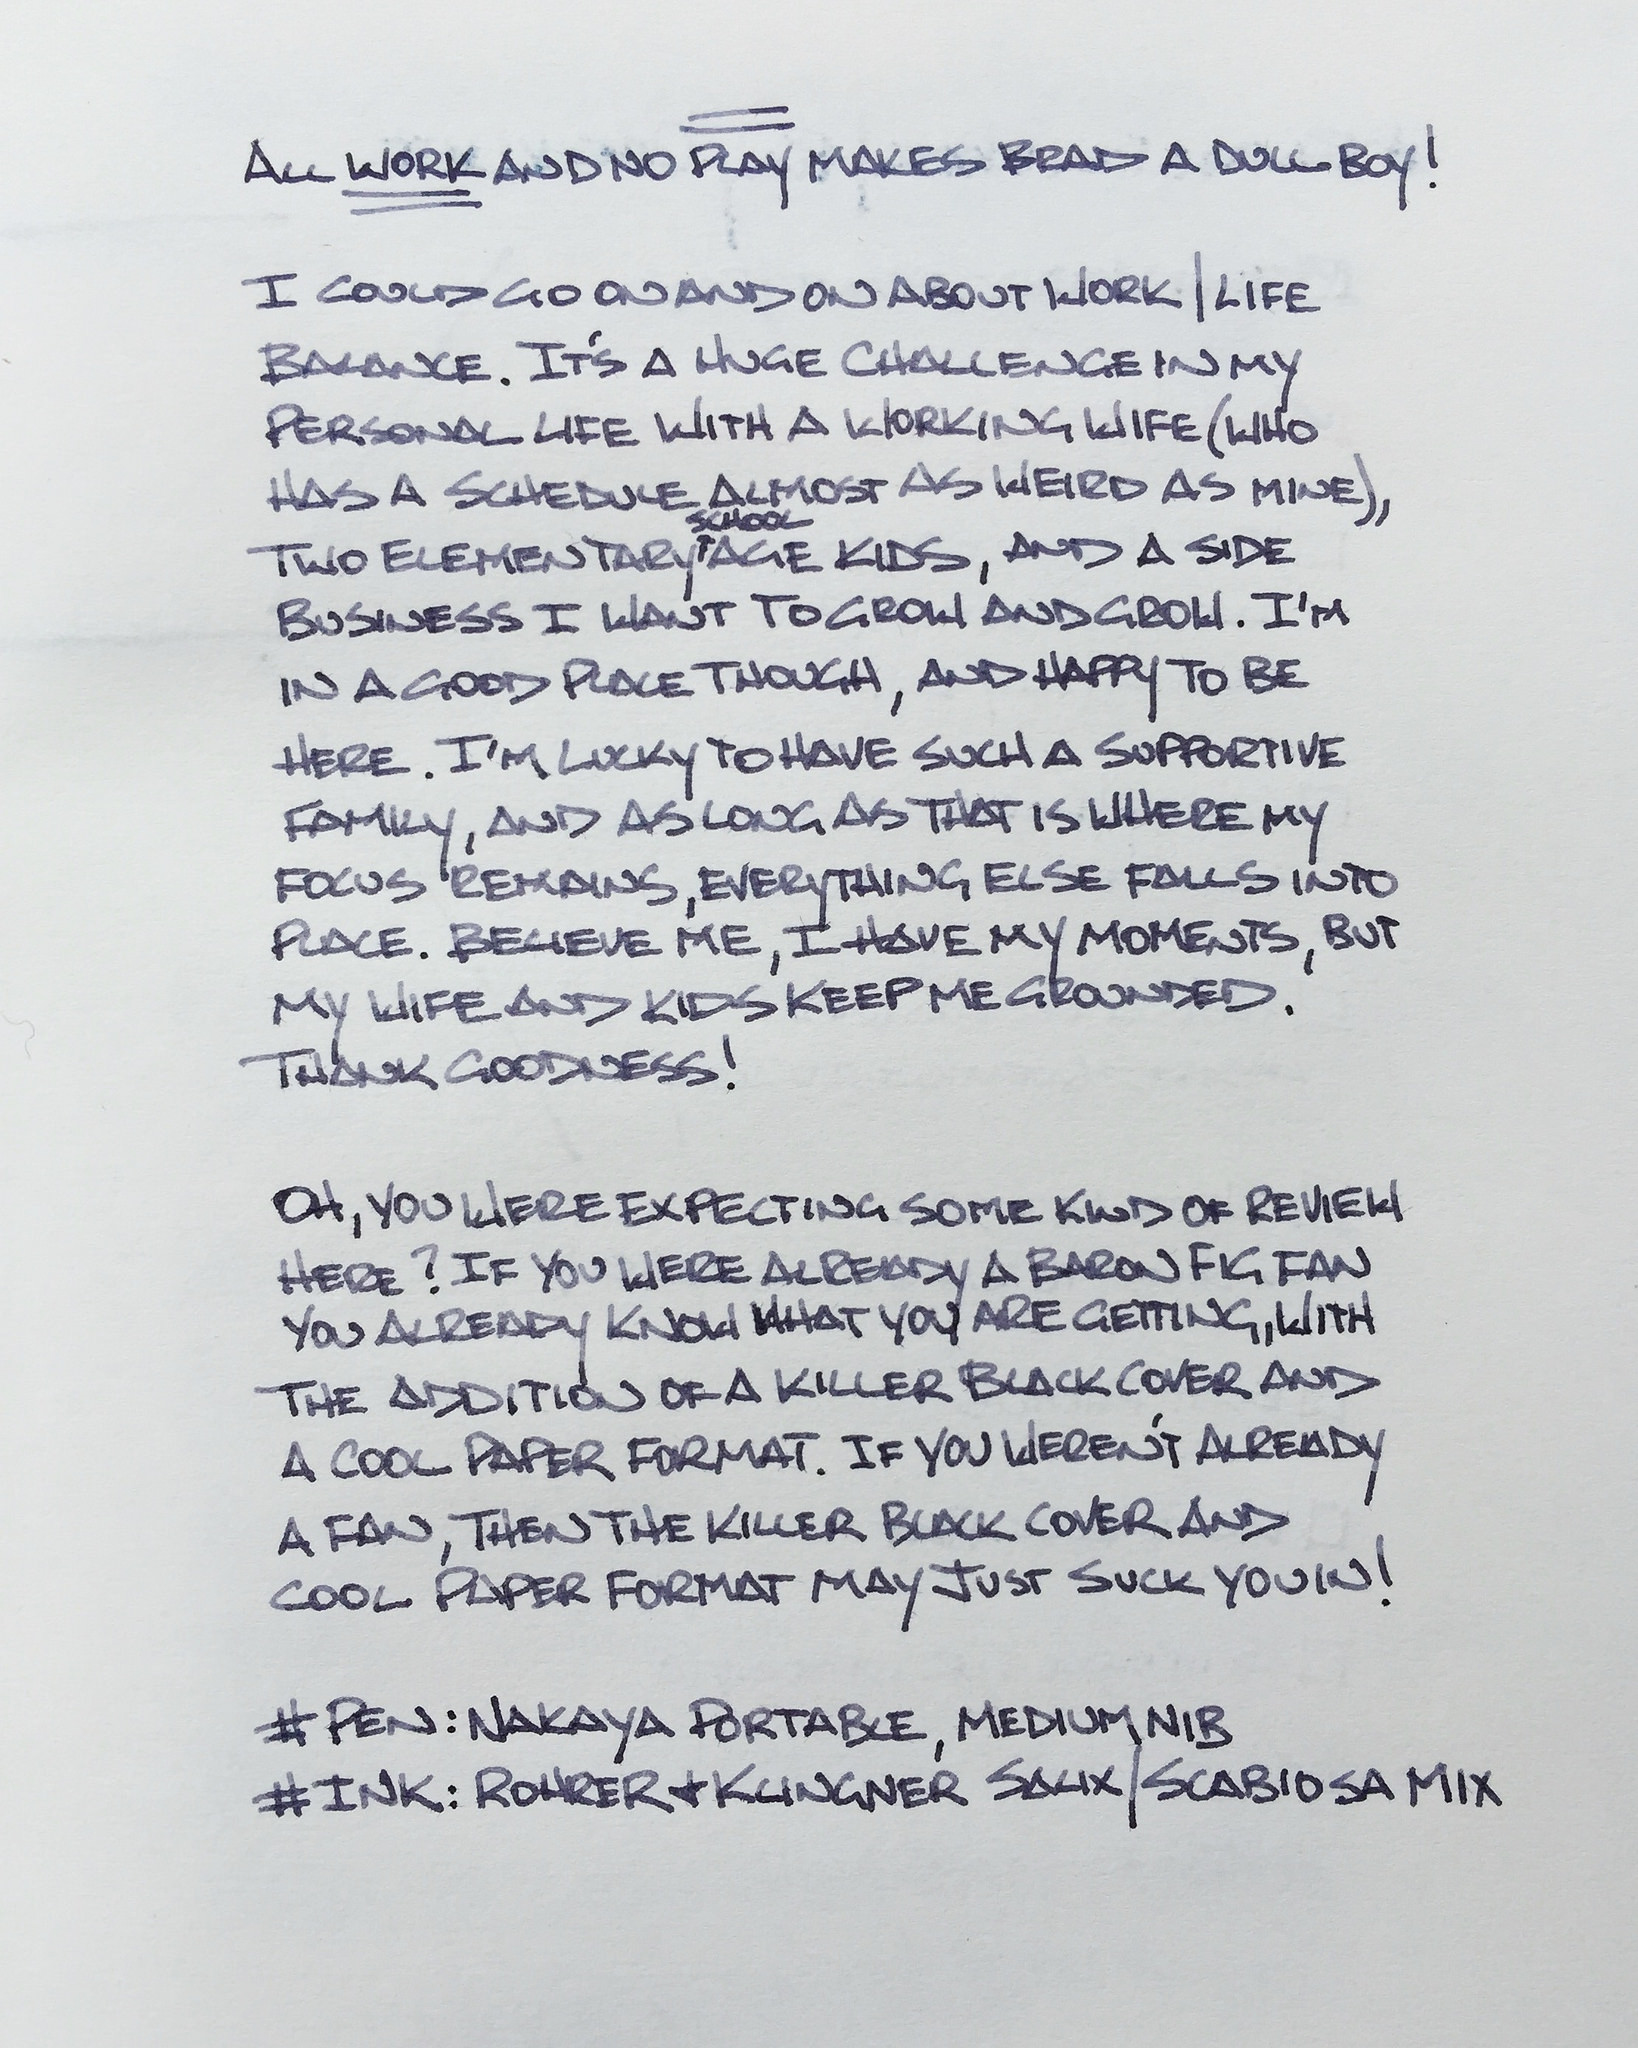 ALL WORK AND NO PLAY MAKES BRAD A DULL BOY!
I COULD GO ON AND ON ABOUT WORK/LIFE
BALANCE. IT'S A HUGE CHALLENGE IN MY
PERSONAL LIFE WITH A WORKING WIFE (WHO
HAS A SCHEDULE ALMOST AS WEIRD AS MINE),
TWO ELEMENTARY SCHOOL AGE KIDS, AND A SIDE
BUSINESS I WANT TO GROW AND GROW. I'M
IN A GOOD PLACE THOUGH, AND HAPPY TO BE
HERE. I'M LUCKY TO HAVE SUCH A SUPPORTIVE
FAMILY, AND AS LONG AS THAT IS WHERE MY
FOCUS REMAINS, EVERYTHING ELSE FALLS INTO
PLACE. BELIEVE ME, I HAVE MY MOMENTS, BUT
MY WIFE AND KIDS KEEP ME GROUNDED.
THANK GOODNESS!
OH, YOU WERE EXPECTING SOME KIND OF REVIEW
HERE? IF YOU WERE ALREADY A BARON FIG FAN
YOU ALREADY KNOW WHAT YOU ARE GETTING, WITH
THE ADDITION OF A KILLER BLACK COVER AND
A COOL PAPER FORMAT. IF YOU WEREN'T ALREADY
A FAN, THEN THE KILLER BLACK COVER AND
COOL PAPER FORMAT MAY JUST SUCK YOU IN!
# PEN: NAKAYA PORTABLE, MEDIUM NIB
# INK: ROHRER + KLINGNER SALIX/SCABIOSA MIX